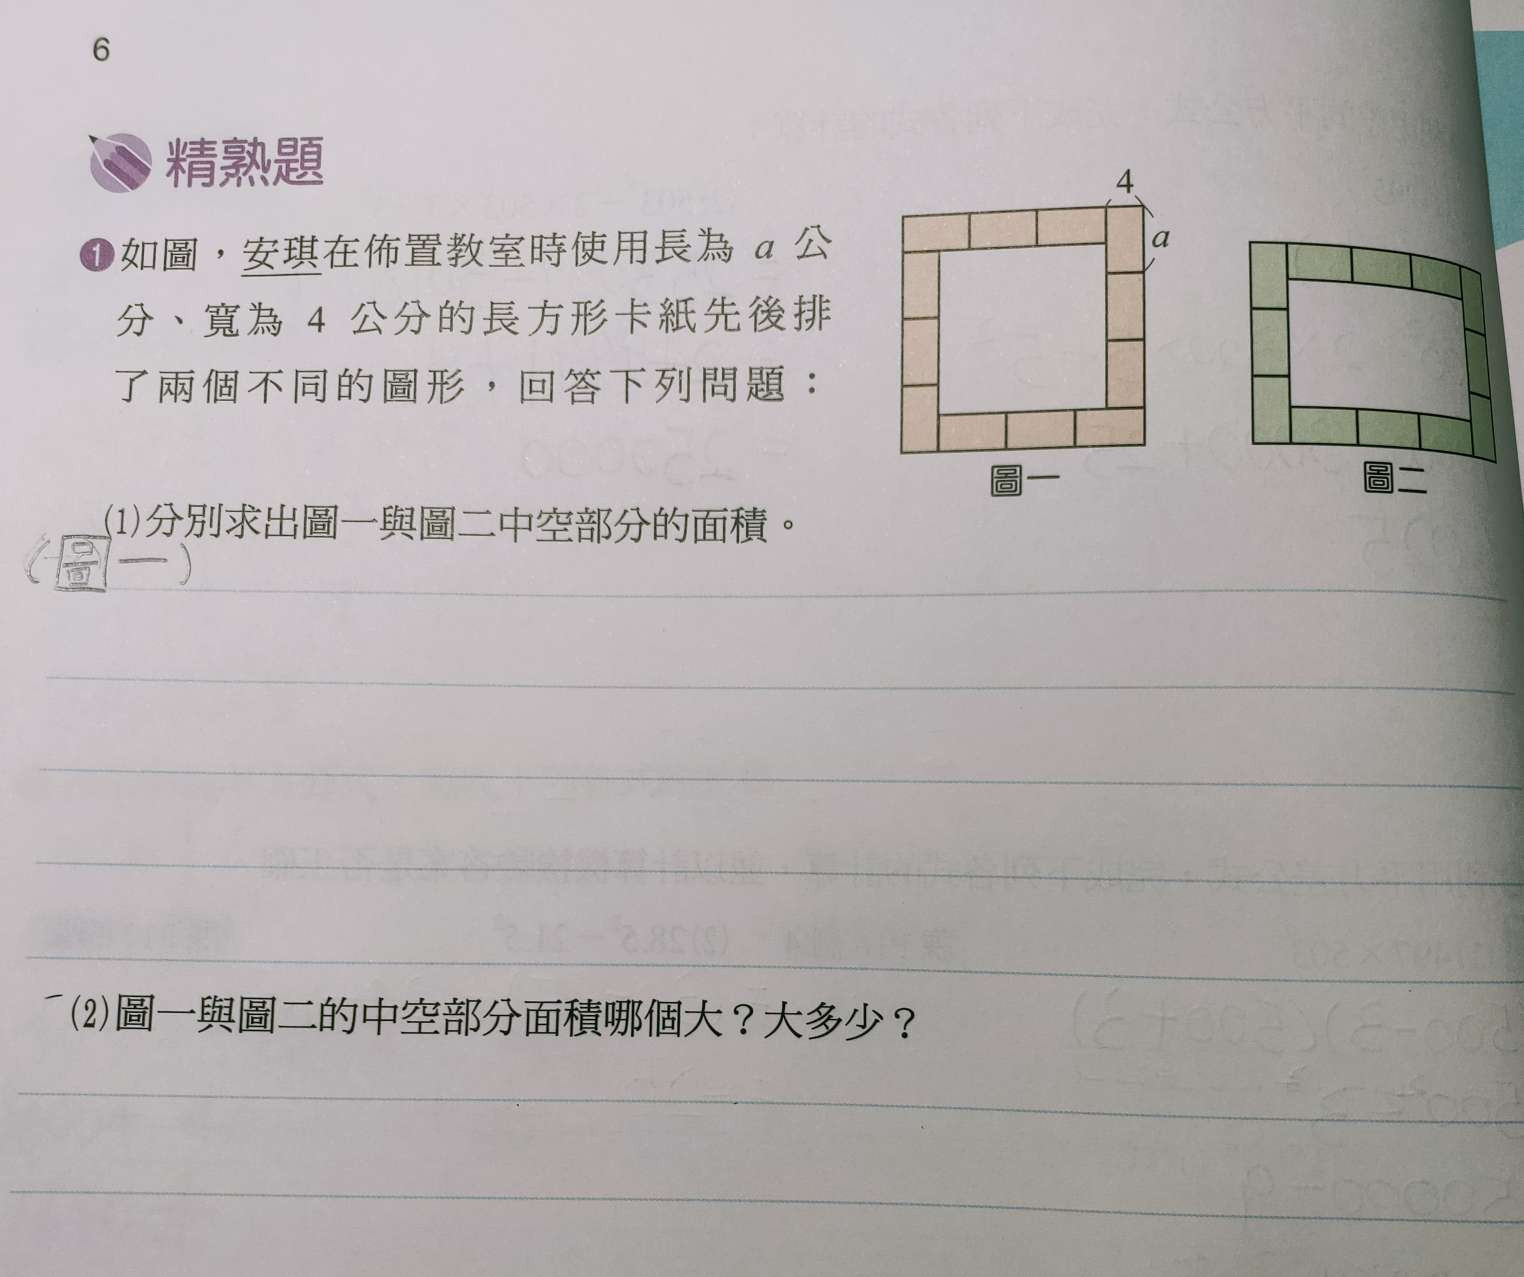 6
精熟題
4
a
❶如圖，安琪在佈置教室時使用長為 a 公
分、寬為 4 公分的長方形卡紙先後排
了兩個不同的圖形，回答下列問題：
圖一
圖二
(1)分別求出圖一與圖二中空部分的面積。
(圖一)
(2)圖一與圖二的中空部分面積哪個大？大多少？